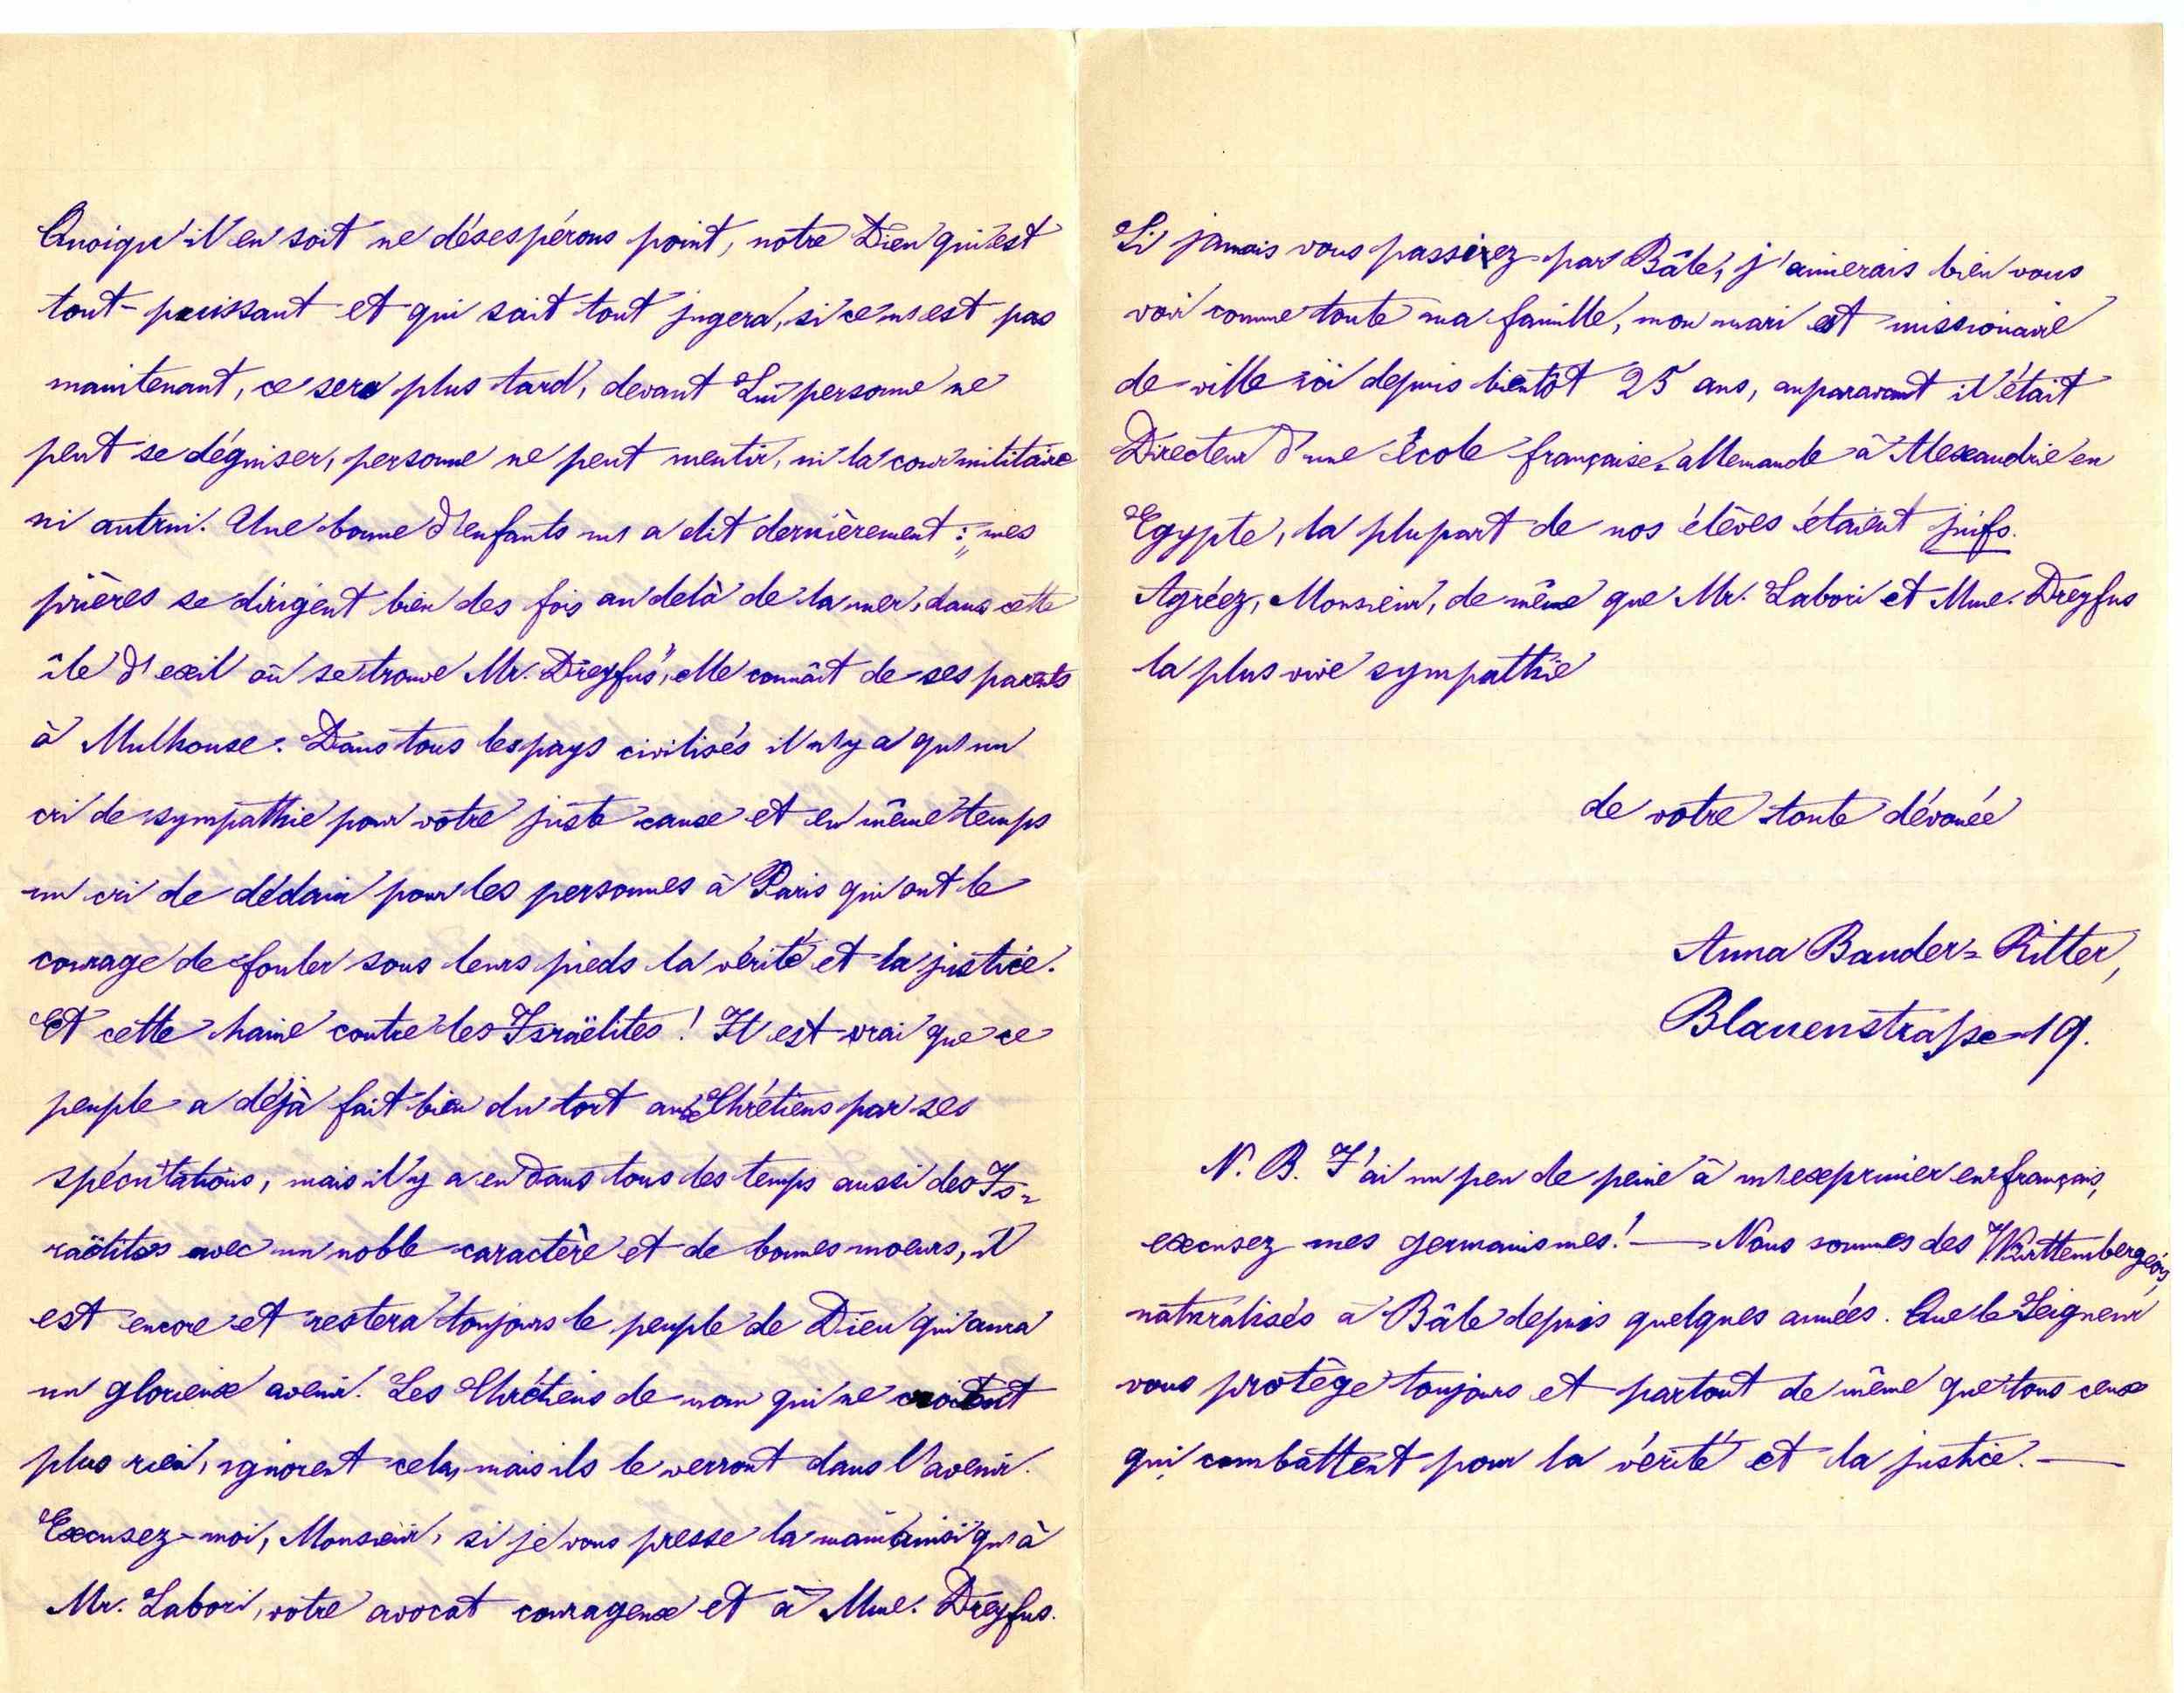 Quoiqu'il en soit ne désespérons point, notre Dieu qui est
tout-puissant et qui sait tout jugera, si ce n'est pas
maintenant, ce sera plus tard, devant Lui personne ne
peut se déguiser, personne ne peut mentir, ni la cour militaire
ni autrui. Une bonne d'enfants m'a dit dernièrement : „mes
prières se dirigent bien des fois au delà de la mer, dans cette
île d'exil où se trouve Mr. Dreyfus", elle connaît de ses parents
à Mulhouse. Dans tous les pays civilisés il n'y a qu'un
cri de sympathie pour votre juste cause et en même temps
un cri de dédain pour les personnes à Paris qui ont le
courage de fouler sous leurs pieds la vérité et la justice.
Et cette haine contre les Israëlites ! Il est vrai que ce
peuple a déjà fait bien du tort aux Chrétiens par ses
spéculations, mais il y a eu dans tous les temps aussi des Is-
raëlites avec un noble caractère et de bonnes moeurs, il
est encore et restera toujours le peuple de Dieu qui aura
un glorieux avenir. Les Chrétiens de nom qui ne croient
plus rien, ignorent cela, mais ils le verront dans l'avenir.
Excusez-moi, Monsieur, si je vous presse la main ainsi qu'à
Mr. Labori, votre avocat courageux et à Mme. Dreyfus.
Si jamais vous passerez par Bâle, j'aimerais bien vous
voir comme toute ma famille, mon mari est missionaire
de ville ici depuis bientôt 25 ans, auparavant il était
Directeur d'une École française-allemande à Alexandrie en
Egypte, la plupart de nos élèves étaient juifs.
Agréez, Monsieur, de même que Mr. Labori et Mme. Dreyfus
la plus vive sympathie
de votre toute dévouée
Anna Bauder-Ritter,
Blauenstraße 19.
N. B. J'ai un peu de peine à m'exprimer en français,
excusez mes germanismes! — Nous sommes des Württembergeois,
naturalisés à Bâle depuis quelques années. Que le Seigneur
vous protège toujours et partout de même que tous ceux
qui combattent pour la vérité et la justice. —